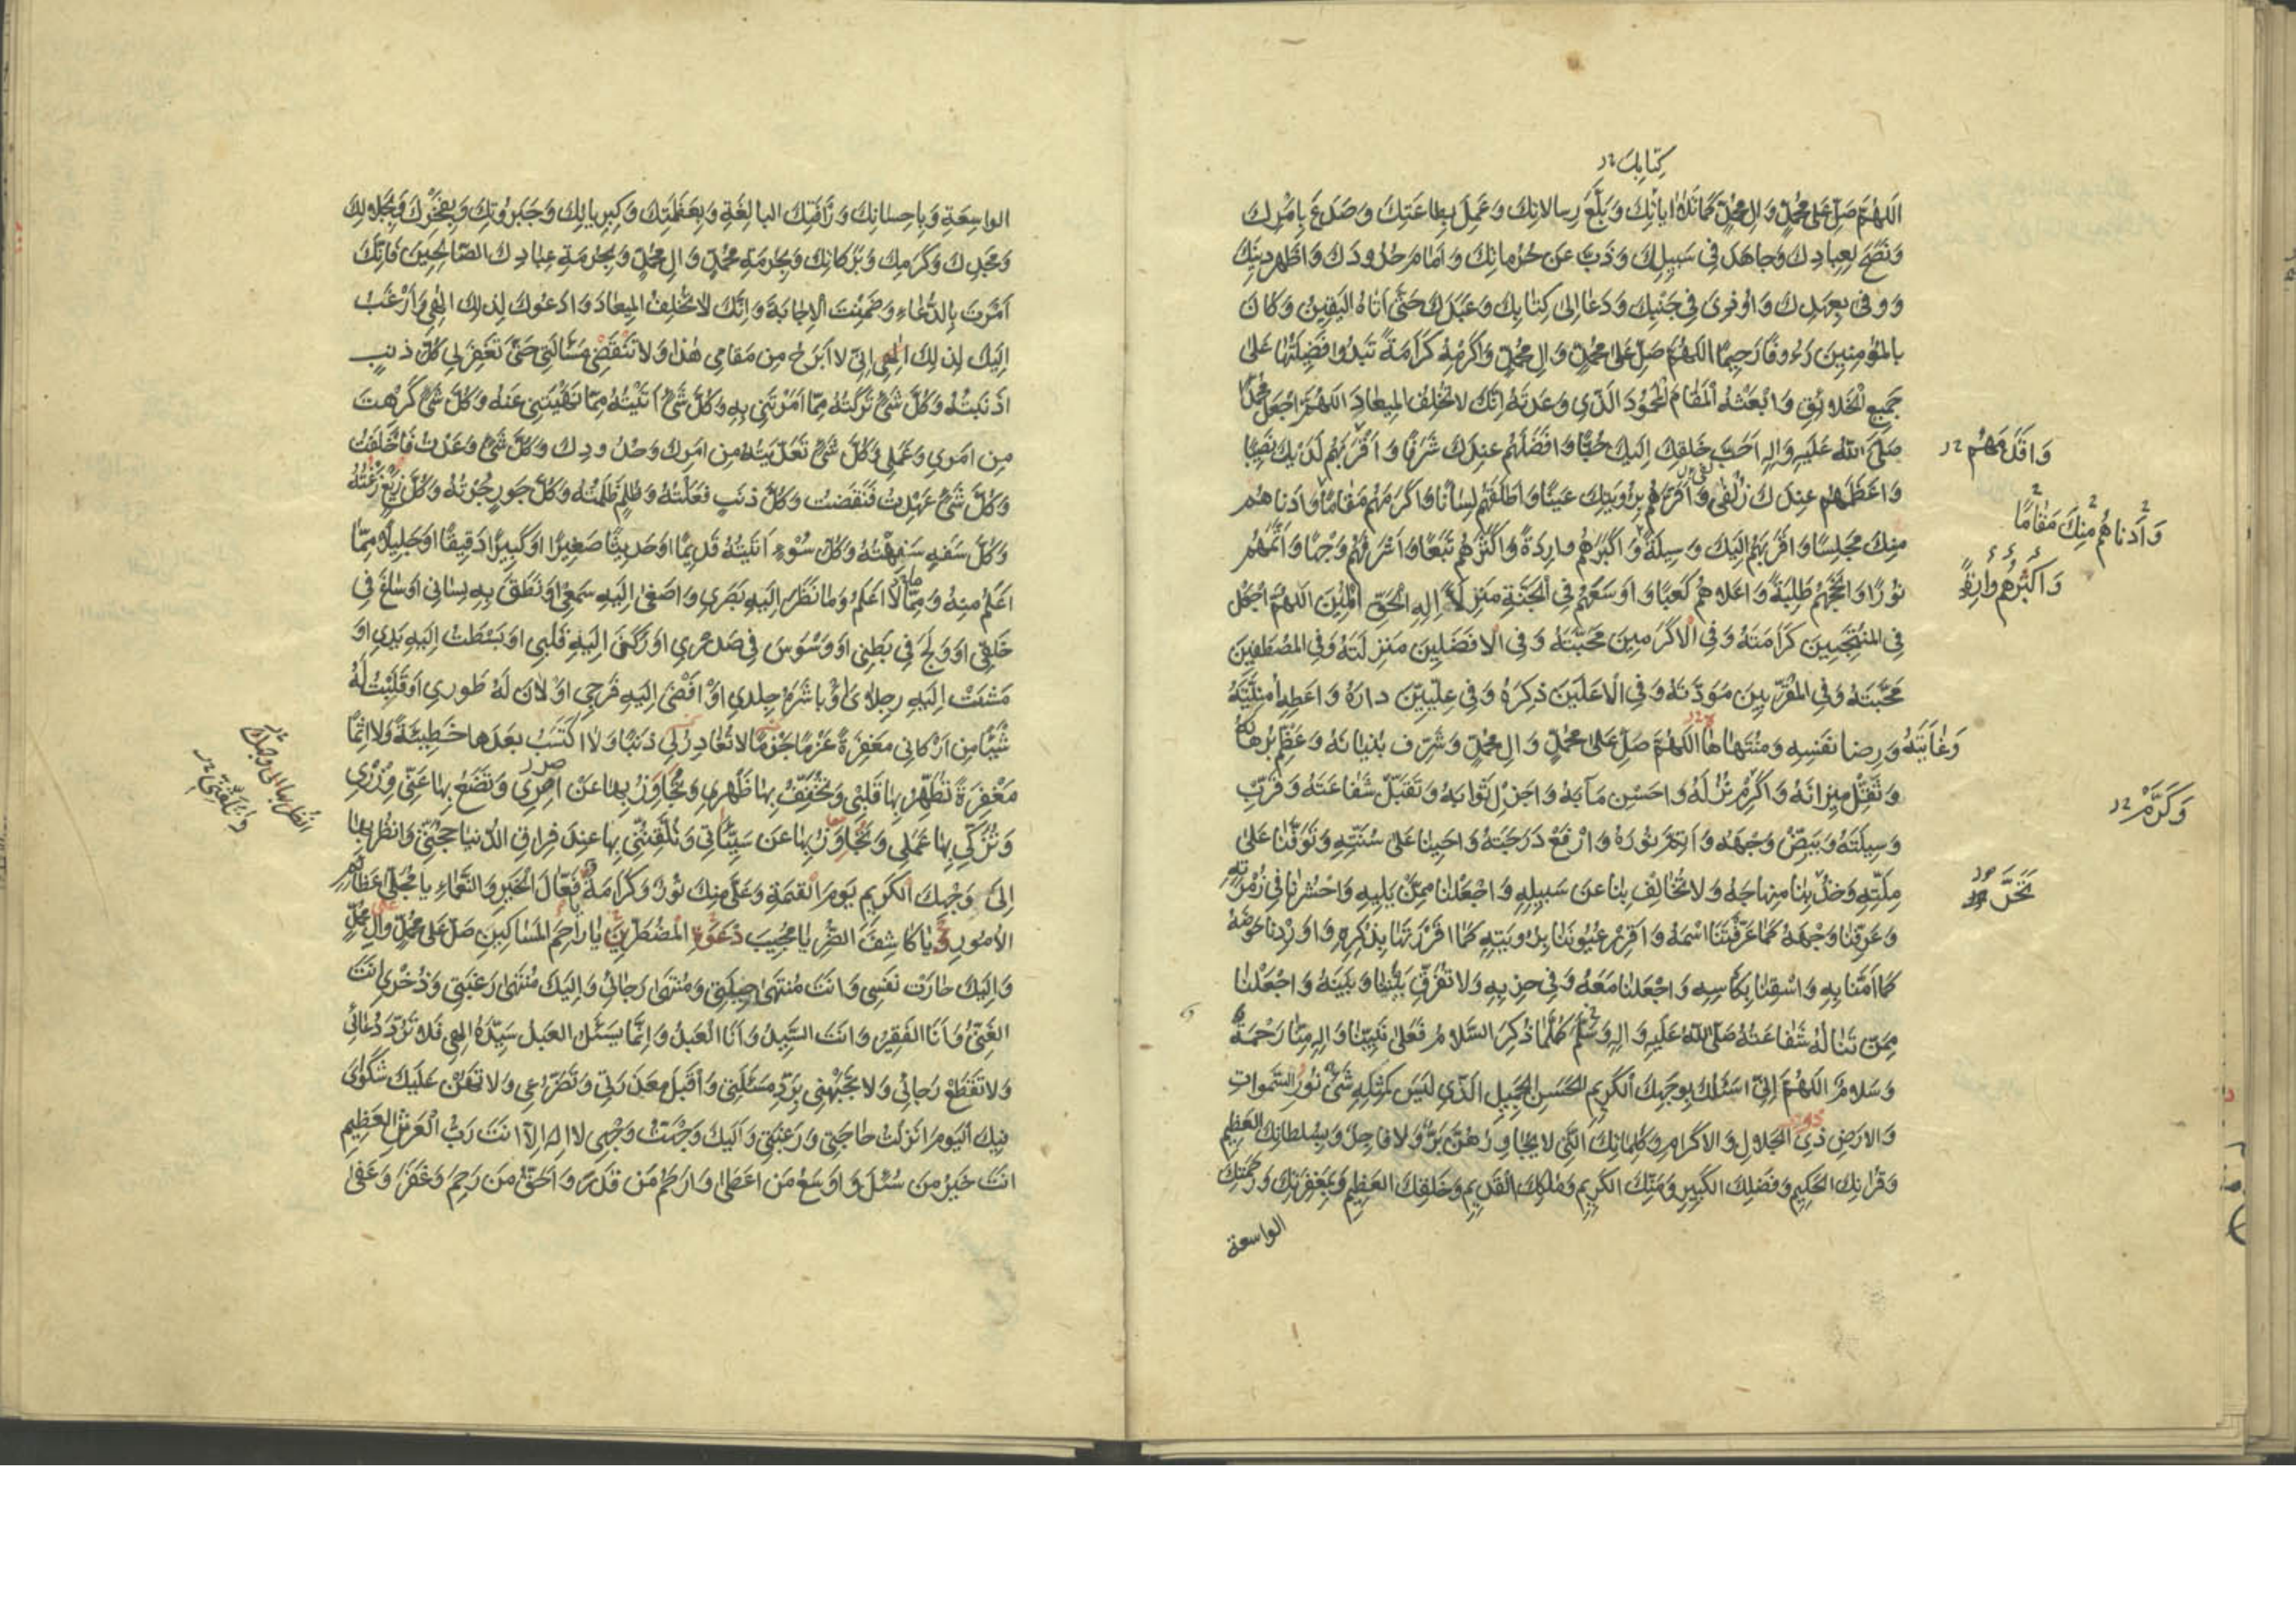 كتابك
اللهم صل على محمد وال محمد كما تلا اياتك وبلغ رسالاتك وعمل بطاعتك وصدع بامرك
ونصح لعبادك وجاهد في سبيلك وذب عن حرماتك واقام حدودك واظهر دينك
ووفى بعهدك واوذي في جنبك ودعا الى كتابك وعبدك حتى اتاه اليقين وكان
بالمؤمنين رءوفا رحيما اللهم صل على محمد وال محمد واكرمه كرامة تبدوا فضيلتها على
جميع الخلائق وابعثه المقام المحمود الذي وعدته انك لا تخلف الميعاد اللهم اجعل محمدا
صلى الله عليه واله احب خلقك اليك حبا وافضلهم عندك شرفا واقربهم لديك نصيبا
واعظمهم عندك زلفى واقرهم برؤيتك عينا واطلقهم لسانا واكرمهم مقاما وادناهم
منك مجلسا واقربهم اليك وسيلة واكبرهم واردة واكثرهم تبعا واشرقهم وجها واتمهم
نورا وانجحهم طلبة واعلاهم كعبا واوسعهم في الجنة منزلا اله الحق المبين اللهم اجعل
في المنتجبين كرامته وفي الاكرمين محبته وفي الافضلين منزلته وفي المصطفين
محبته وفي المقربين مودته وفي الاعلين ذكره وفي عليين داره واعطه امنيته
وغايته ورضا نفسه ومنتهاها اللهم صل على محمد وال محمد وشرف بنيانه وعظم برهانه
وثقل ميزانه واكرم نزله واحسن مآبه واجزل ثوابه وتقبل شفاعته وقرب
وسيلته وبيض وجهه واتم نوره وارفع درجته واحينا على سنته وتوفنا على
ملته وخذ بنا منهاجه ولا تخالف بنا عن سبيله واجعلنا ممن يليه واحشرنا في زمرته
وعرفنا وجهه كما عرفتنا اسمه واقرر عيوننا برؤيته كما اقررتها بذكره واوردنا حوضه
كما امنا به واسقنا بكاسه واجعلنا معه وفي حزبه ولا تفرق بيننا وبينه واجعلنا
ممن تناله شفاعته صلى الله عليه واله وسلم كلما ذكر السلام فعلى نبينا واله منا رحمة
وسلام اللهم اني اسئلك بوجهك الكريم الحسن الجميل الذي ليس كمثله شئ نور السموات
والارض ذي الجلال والاكرام وكلماتك التي لا يجاوزهن بر ولا فاجر وبسلطانك العظيم
وقرانك الحكيم وفضلك الكبير ومنك الكريم وملكك القديم وخلقك العظيم وبمغفرتك ورحمتك
الواسعة
واقدمهم
وادناهم منك مقاما
واكثرهم
وكرم
الواسعة وباحسانك ورافتك البالغة وبعظمتك وكبريائك وجبروتك وبفخرك وبجلالك
ومجدك وكرمك وبركاتك وبحرمة محمد وال محمد وبحرمة عبادك الصالحين فانك
امرت بالدعاء وضمنت الاجابة وانك لا تخلف الميعاد وادعوك لذلك الهي وارغب
اليك لذلك الهي اني لا ابرح من مقامي هذا ولا تنقضي مسألتي حتى تغفر لي كل ذنب
اذنبته وكل شئ تركته مما امرتني به وكل شئ اتيته مما نهيتني عنه وكل شئ كرهت
من امري وعملي وكل شئ تعديته من امرك وحدودك وكل شئ وعدت فاخلفت
وكل شئ عهدت فنقضت وكل ذنب فعلته وظلم ظلمته وكل جور جرته وكل زيغ زغته
وكل سفه سفهته وكل سوء اتيته قديما او حديثا صغيرا او كبيرا دقيقا او جليلا مما
اعلم منه ومما لا اعلم وما نظر اليه بصري واصغى اليه سمعي او نطق به لساني او ساغ في
حلقي او ولج في بطني او وسوس في صدري او ركن اليه قلبي او بسطت اليه يدي او
مشت اليه رجلاي او باشره جلدي او افضى اليه فرجي او لان له طوري او قلبت له
شيئا من اركاني مغفرة عزما جزما لا تغادر لي ذنبا ولا اكتسب بعدها خطيئة ولا اثما
مغفرة تطهر بها قلبي وتخفف بها ظهري وتجاوز بها عن اصري وتضع بها عني وزري
وتزكي بها عملي وتجاوز بها عن سيئاتي وتلقنني بها عند فراق الدنيا حجتي وانظر بها
الى وجهك الكريم يوم القيمة وعلي منك نور وكرامة يا فعال الخير والنعماء يا مجلي عظائم
الامور ويا كاشف الضر يا مجيب دعوة المضطرين يا راحم المساكين صل على محمد وال محمد
واليك جارت نفسي وانت منتهى حيلتي ومنتهى رجائي واليك منتهى رغبتي وذخري انت
الغني وانا الفقير وانت السيد وانا العبد وانما يسئل العبد سيده الهي فلا ترد دعائي
ولا تقطع رجائي ولا تجبهني برد مسئلتي واقبل معذرتي وتضرعي ولا تهن عليك شكواي
فبك اليوم انزلت حاجتي ورغبتي واليك وجهت وجهي لا اله الا انت رب العرش العظيم
انت خير من سئل واوسع من اعطى وارحم من قدر واحق من رحم وغفر وعفى